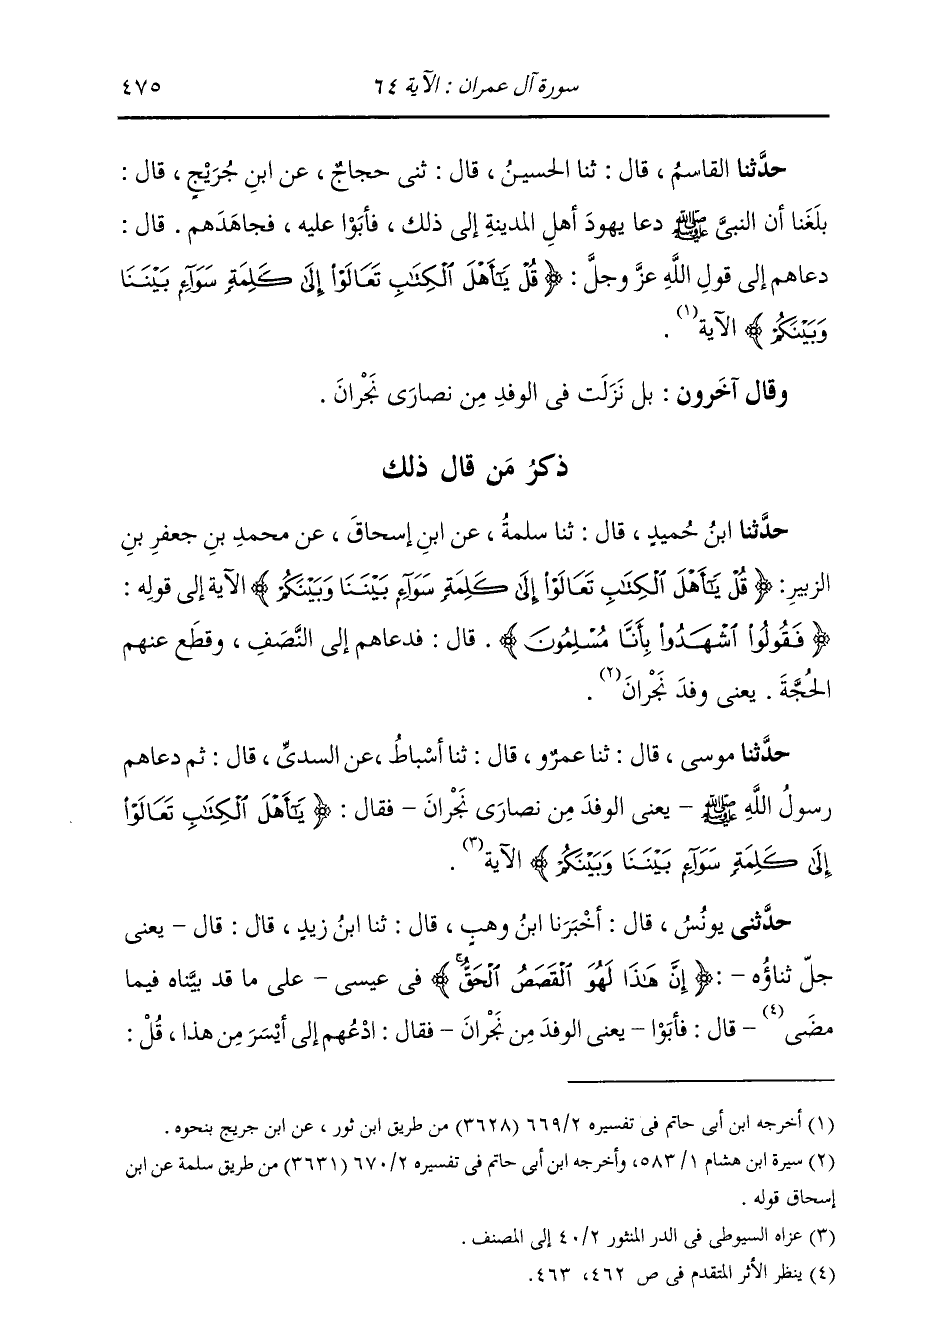 سورة آل عمران : الآية ٦٤ ٤٧٥
حدَّثنا القاسمُ ، قال : ثنا الحسينُ ، قال : ثنى حجاجٌ ، عن ابنِ جُرَيْجٍ ، قال :
بلَغَنا أن النبىَّ ﷺ دعا يهودَ أهلِ المدينةِ إلى ذلك ، فأبَوْا عليه ، فجاهَدَهم . قال :
دعاهم إلى قولِ اللَّهِ عزَّ وجلَّ : ﴿ قُلْ يَٰٓأَهْلَ ٱلْكِتَٰبِ تَعَالَوْا۟ إِلَىٰ كَلِمَةٍ سَوَآءٍ بَيْنَنَا
وَبَيْنَكُمْ ﴾ الآية(١) .
وقال آخَرون : بل نَزَلَت فى الوفدِ مِن نصارَى نَجْرانَ .
ذكرُ مَن قال ذلك
حدَّثنا ابنُ حُميدٍ ، قال : ثنا سلمةُ ، عن ابنِ إسحاقَ ، عن محمدِ بنِ جعفرِ بنِ
الزبيرِ : ﴿ قُلْ يَٰٓأَهْلَ ٱلْكِتَٰبِ تَعَالَوْا۟ إِلَىٰ كَلِمَةٍ سَوَآءٍ بَيْنَنَا وَبَيْنَكُمْ ﴾ الآية إلى قولِه :
﴿ فَقُولُوا۟ ٱشْهَدُوا۟ بِأَنَّا مُسْلِمُونَ ﴾ . قال : فدعاهم إلى النَّصَفِ ، وقطَع عنهم
الحُجَّةَ . يعنى وفدَ نَجْرانَ(٢) .
حدَّثنا موسى ، قال : ثنا عمرٌو ، قال : ثنا أسْباطُ ،عن السدىِّ ، قال : ثم دعاهم
رسولُ اللَّهِ ﷺ – يعنى الوفدَ مِن نصارَى نَجْرانَ – فقال : ﴿ يَٰٓأَهْلَ ٱلْكِتَٰبِ تَعَالَوْا۟
إِلَىٰ كَلِمَةٍ سَوَآءٍ بَيْنَنَا وَبَيْنَكُمْ ﴾ الآية(٣) .
حدَّثنى يونُسُ ، قال : أخْبَرَنا ابنُ وهبٍ ، قال : ثنا ابنُ زيدٍ ، قال : قال – يعنى
جلّ ثناؤُه – : ﴿ إِنَّ هَٰذَا لَهُوَ ٱلْقَصَصُ ٱلْحَقُّ ۚ ﴾ فى عيسى – على ما قد بيَّناه فيما
مضَى(٤) – قال : فأبَوْا – يعنى الوفدَ مِن نَجْرانَ – فقال : ادْعُهم إلى أيْسَرَ مِن هذا ، قُلْ :
(١) أخرجه ابن أبى حاتم فى تفسيره ٦٦٩/٢ (٣٦٢٨) من طريق ابن ثور ، عن ابن جريج بنحوه .
(٢) سيرة ابن هشام ١/ ٥٨٣، وأخرجه ابن أبى حاتم فى تفسيره ٦٧٠/٢ (٣٦٣١) من طريق سلمة عن ابن
إسحاق قوله .
(٣) عزاه السيوطى فى الدر المنثور ٤٠/٢ إلى المصنف .
(٤) ينظر الأثر المتقدم فى ص ٤٦٢، ٤٦٣.